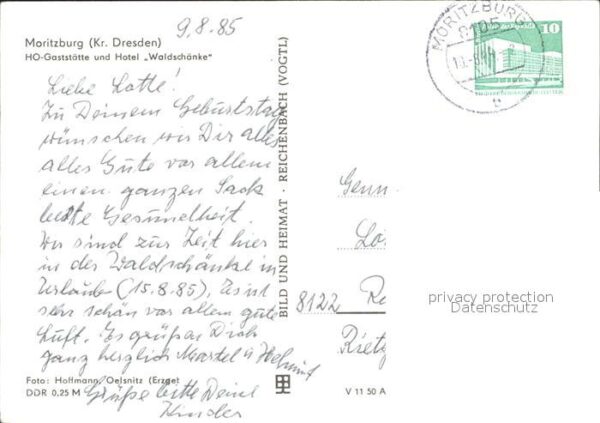 9.8.85
Moritzburg (Kr. Dresden)
HO-Gaststätte und Hotel „Waldschänke"
Liebe Lotte!
Zu Deinem Geburtstag
wünschen wir Dir alles
alles Gute vor allem
einen ganzen Sack
Gesundheit.
Wir sind zur Zeit hier
in der Waldschänke in
Urlaub (15.8.85), Es ist
sehr schön vor allem gute
Luft. Es grüßen Dich
ganz herzlich Martel u Helmut
Foto: Hoffmann, Oelsnitz (Erzgeb
DDR 0,25 M
Grüße bitte Deine
Kinder
BILD UND HEIMAT · REICHENBACH (VOGTL)
V 11 50 A
MORITZBURG
8105
10
Genn
Lo
8122 Re
Rietz
privacy protection
Datenschutz